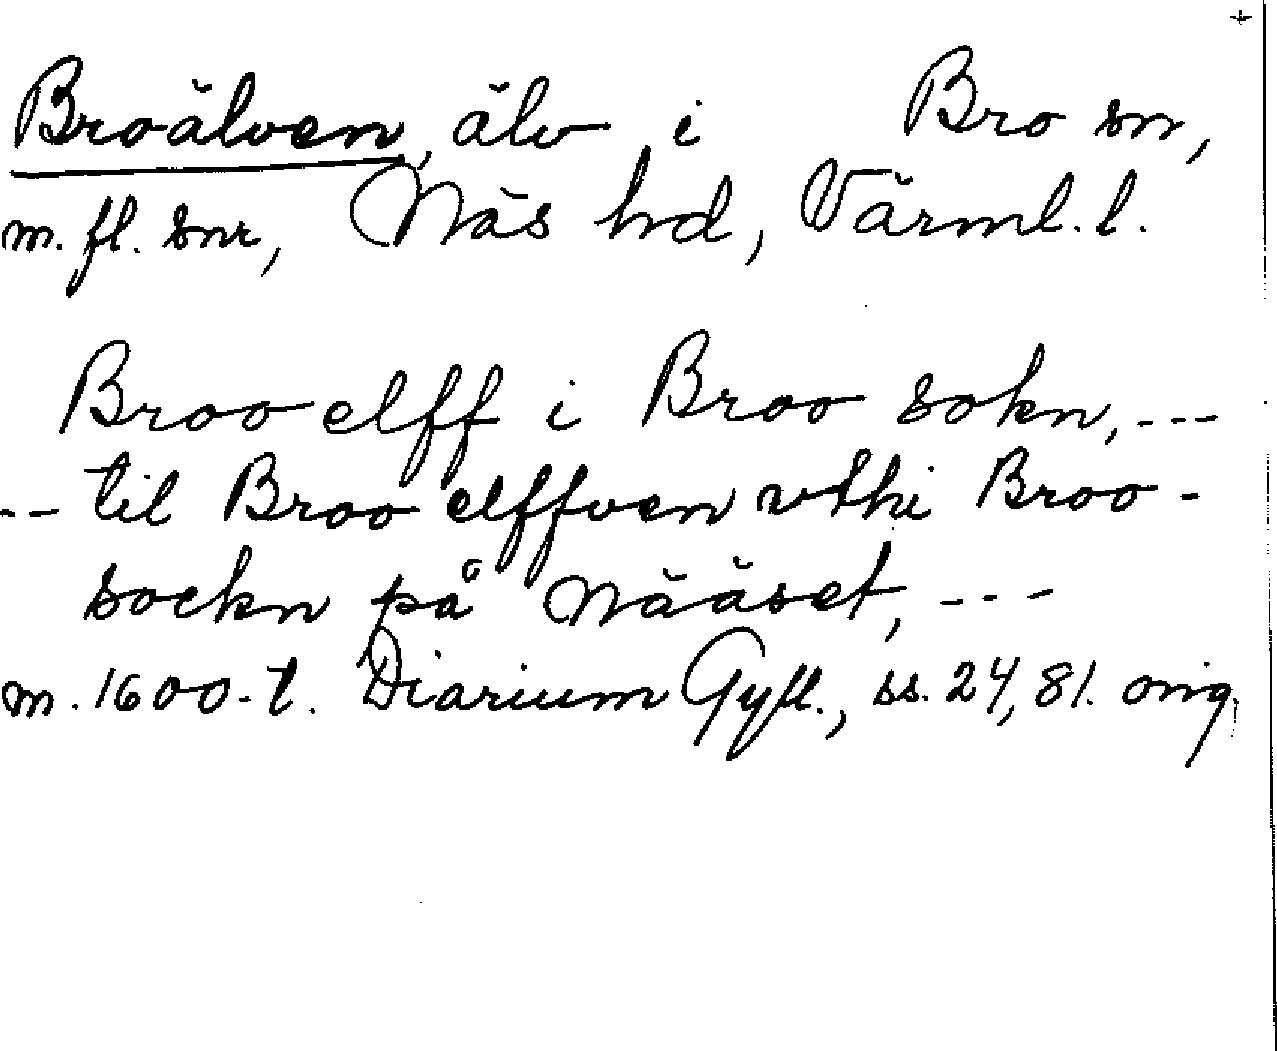 +
Broälven, älv i Bro sn,
m. fl. snr, Näs hd, Värml. l.
Broo elff i Broo sokn, ---
-- til Broo elffven vthi Broo-
sockn på Nääset, ---
m. 1600-t. Diarium Gyll., ss. 24, 81. orig.